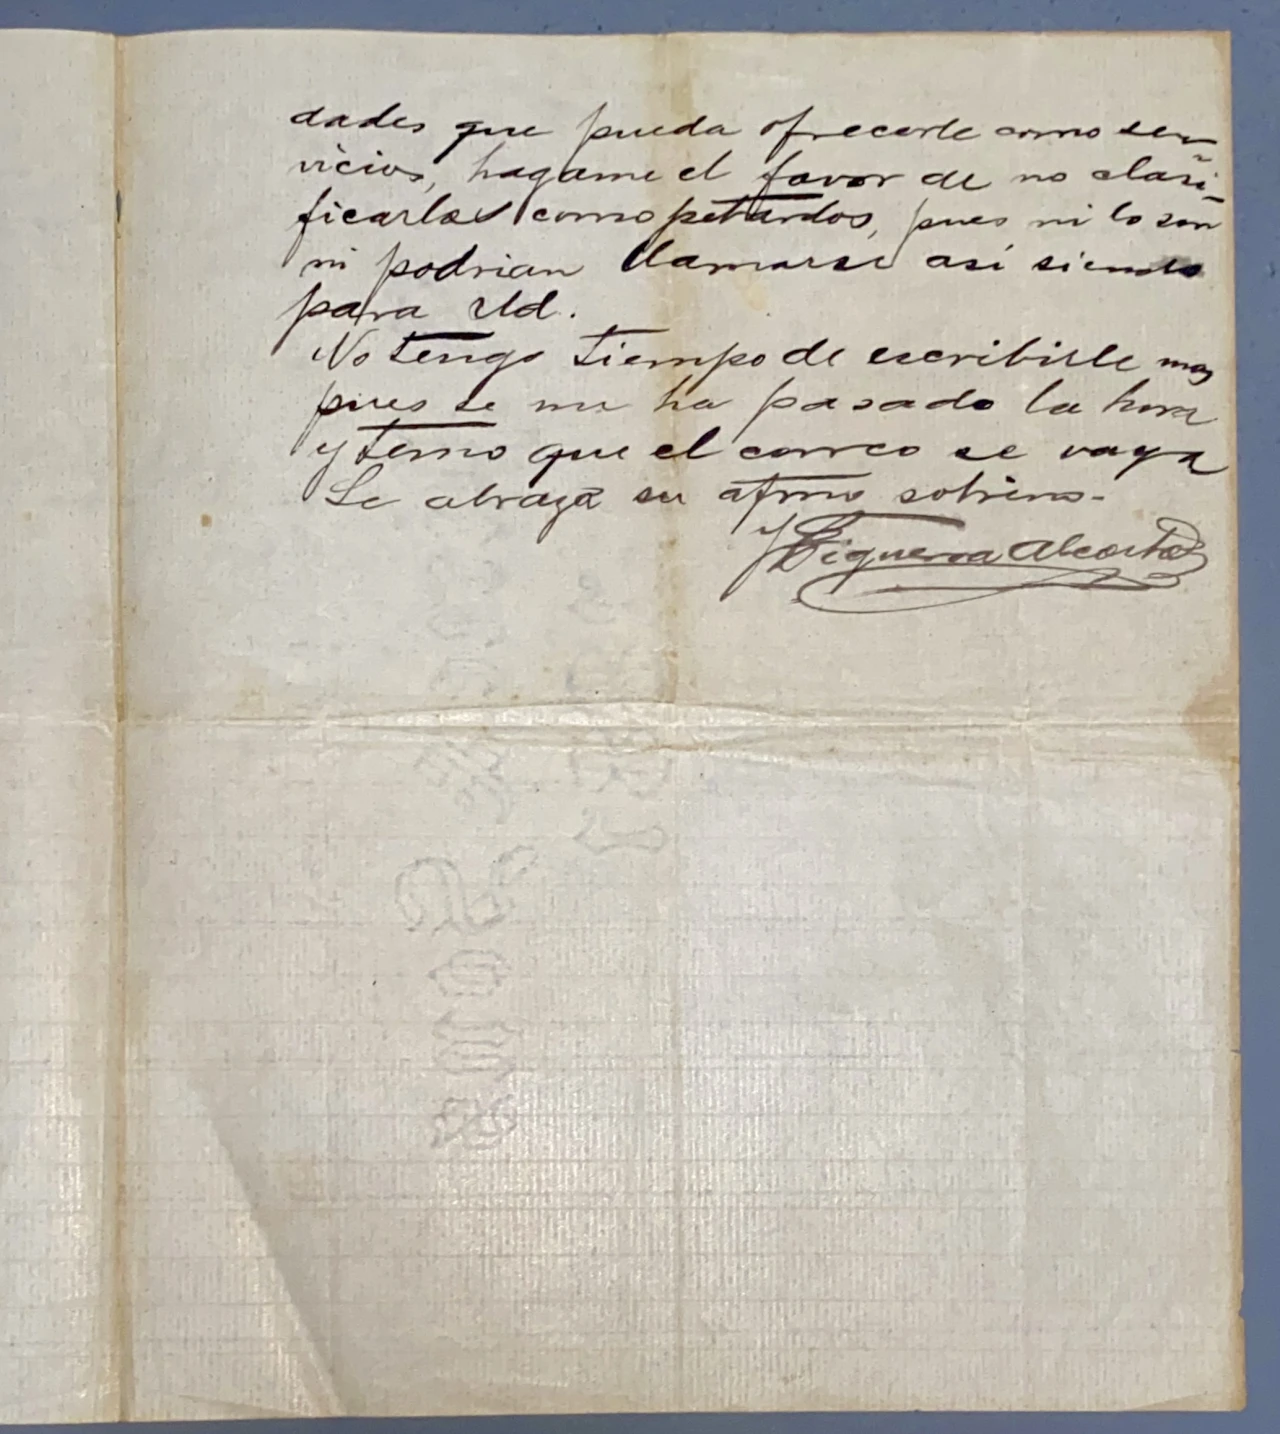 dades que pueda ofrecerle como ser
vicios, hagame el favor de no clasi-
ficarlas como petardos, pues ni lo son
ni podrian llamarse así siendo
para Ud.
No tengo tiempo de escribirle mas
pues se me ha pasado la hora
y temo que el correo se vaya
Le abraza su afmo sobrino-
J Figueroa Alcorta